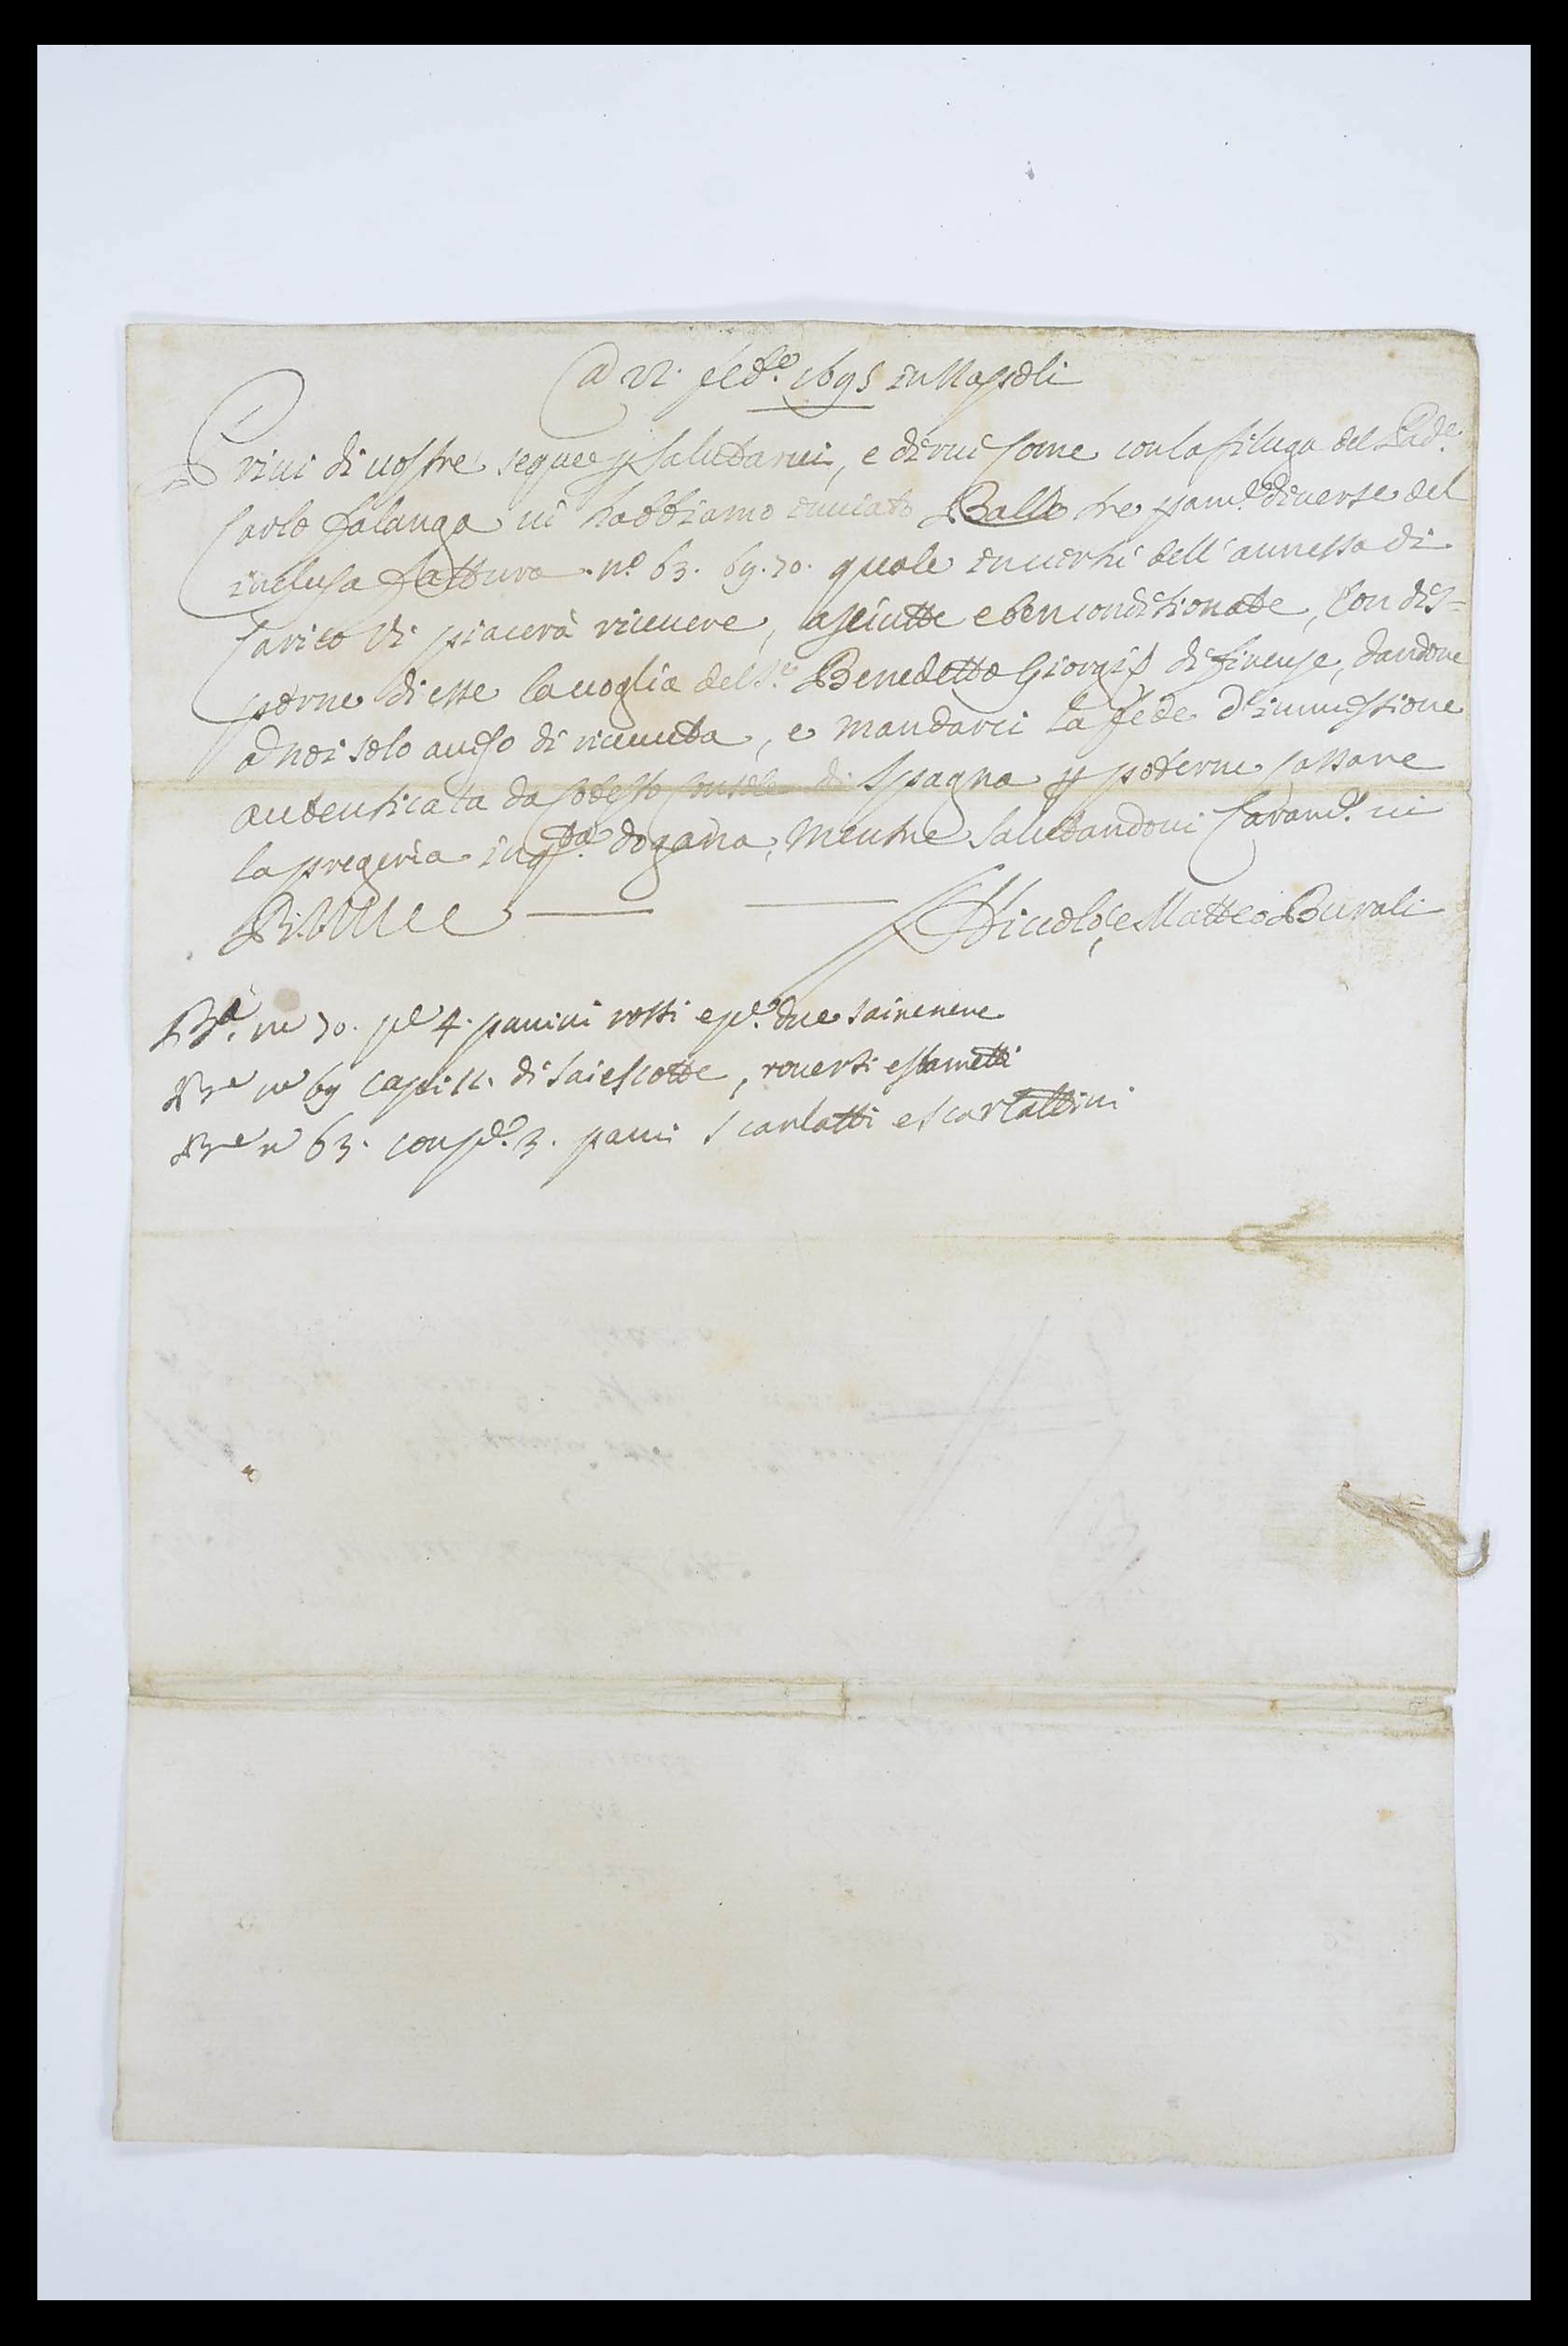 A 22. feb.e 1695 in Napoli
Privi di vostre segue p salutarvi, e dirvi come con la filuga del Pad.e
Carlo Falanga vi habbiamo inviato Balle tre pam.e diverse del
inclusa fattura n.o 63. 69. 70. quale in verhi dell'annessa di
carico vi piacerà ricevere, asciutte e ben conditionate, Con dis=
porne di esse la voglia del S.r Benedetto Giorgi di firenze, dandone
a noi solo aviso di ricevuta, e mandarci la fede d'immissione
autenticata da Codesto Console di Spagna p poterne Cassare
la pregeria in q.ta dogana, mentre salutandovi Caram.e vi
Niccolò, e Matteo Burali
B.a n.o 70. p.e 4. pannini rossi e p.e due saie nere
B.e n.o 69 capi 11. di saie scotte, roversi e stametti
B.e n.o 63. con p.e 3. panni scarlatti e scarlattini